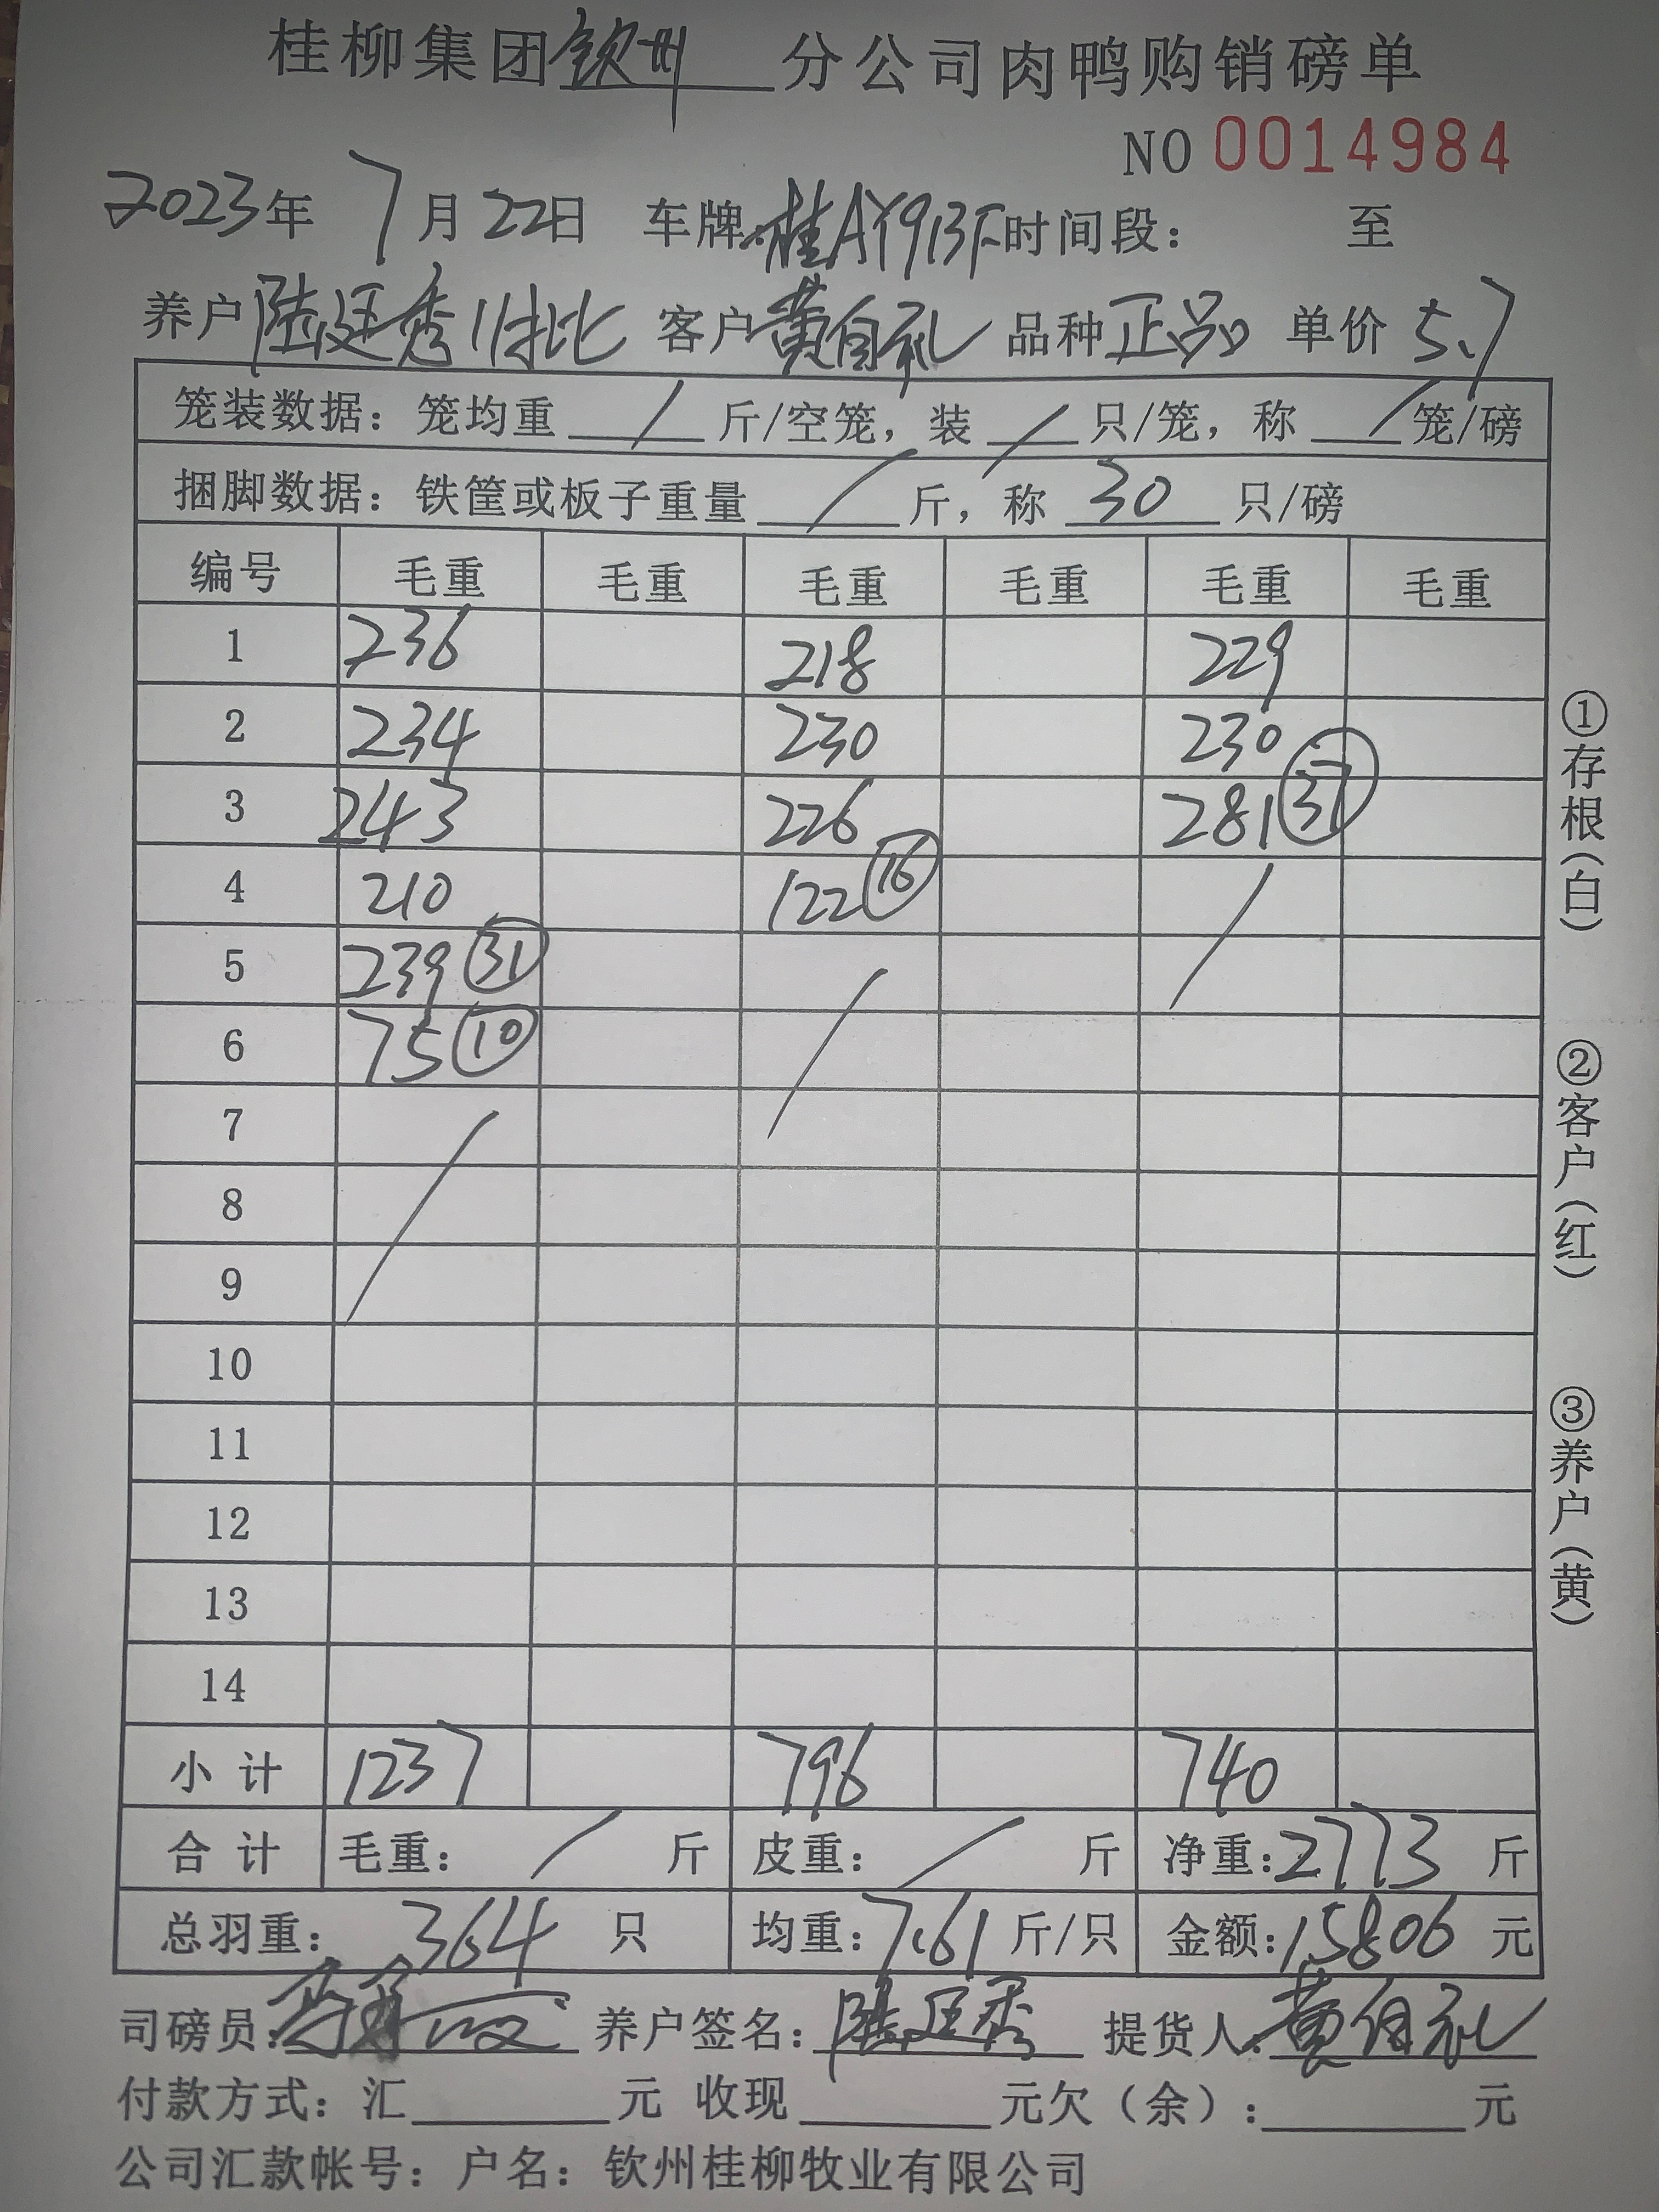 桂柳集团钦州分公司肉鸭购销磅单
NO 0014984
2023年 7月22日 车牌:桂AY913F时间段: 至
养户陆廷秀 客户黄自礼 品种正品 单价5.7
笼装数据: 笼均重 / 斤/空笼, 装 / 只/笼, 称 / 笼/磅
捆脚数据: 铁筐或板子重量 / 斤, 称 30 只/磅
编号 毛重 毛重 毛重 毛重 毛重 毛重
1 236 218 229
2 234 230 230
3 243 226 281 37
4 210 122 16 /
5 239 31 /
6 75 10
7 /
8
9
10
11
12
13
14
小计 1237 796 740
合计 毛重: / 斤 皮重: / 斤 净重:2773 斤
总羽重: 364 只 均重:7.61斤/只 金额:15806元
司磅员: 养户签名:陆廷秀 提货人:黄自礼
付款方式: 汇 元 收现 元欠(余): 元
公司汇款帐号: 户名: 钦州桂柳牧业有限公司
①存根(白)
②客户(红)
③养户(黄)